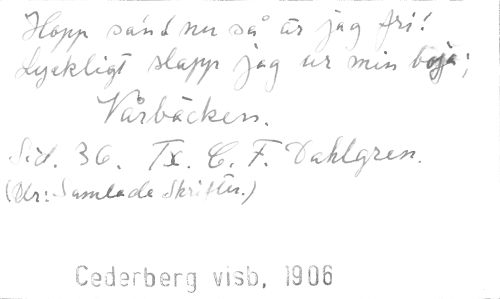 Hopp sánd nu så är jag fri!
Lyckligt slapp jag ur min boja;
Vårbäcken.
Sid. 36. Tx. C. F. Dahlgren.
(Ur: Samlade Skrifter.)
Cederberg visb, 1906